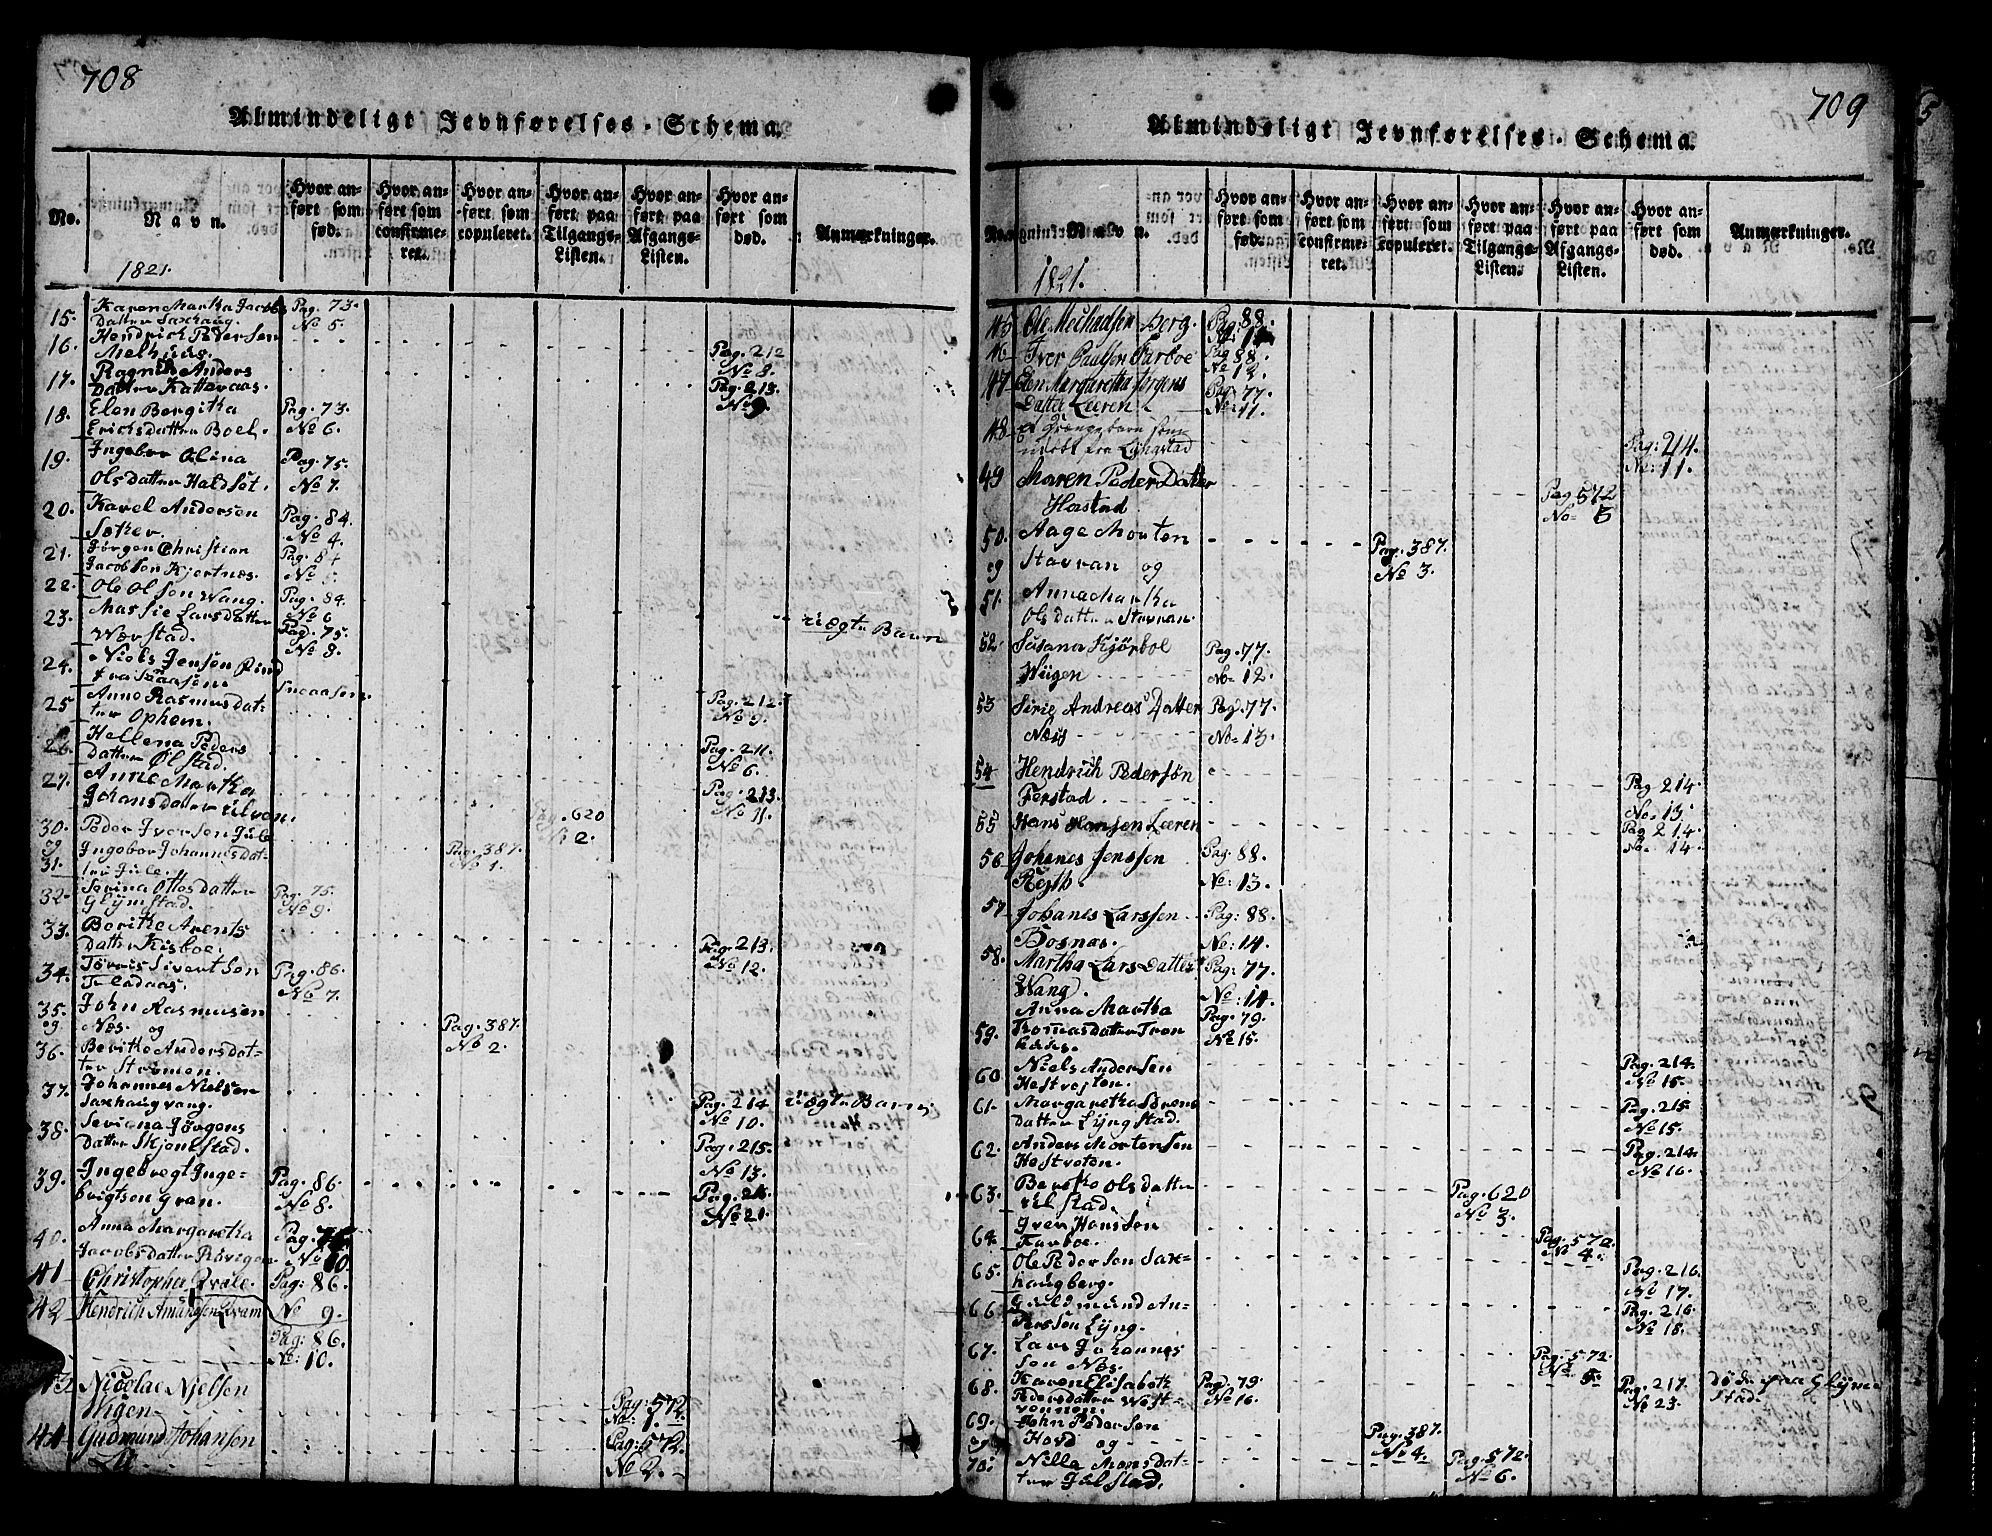 708
Almindeligt Jevnførelses-Schema.
No.
Navn.
Hvor anført som født.
Hvor anført som confirmeret.
Hvor anført som copuleret.
Hvor anført paa Tilgangs-Listen.
Hvor anført paa Afgangs-Listen.
Hvor anført som død.
Anmærkninger.
1821.
15. Karen Martha Jacobs Pag. 73.
Datter Saxhaug. No 5.
16. Hendrich Pedersen
Melhuus. Pag. 212
No 8.
17. Anders Pag. 213.
Datter Kattevaas. No 9.
18. Elen Bergitha Pag. 73.
Ericksdatter Boel. No 6.
19. Ingebor Olina Pag. 75.
Olsdatter Haldset. No 7.
20. Karel Andersen Pag. 84.
No 4.
21. Jørgen Christian Pag. 84
Jacobsen Kjertnæs. No 5.
22. Ole Olsen Wang. Pag. 84.
No 6
23. Larsdatter Pag. 75. uægte Barn
Wærstad. No 8.
24. Niels Jensen
fra Snaasen Snaasen
25 Anne Rasmusdat- Pag. 212.
ter Ophem. No 9.
26. Hellena Peders Pag. 211.
Datter Ølstad. No 6.
27. Anne Martha Pag. 213.
Johansdatter Ulven. No 11.
30. Peder Iversen Jule Pag. 620
og Ingebor Johannesdat- No 2.
31. ter Jule. Pag. 387.
No 1.
32. Serina Ottosdatter Pag. 75.
Glÿmstad. No 9.
33. Berithe Arents Pag. 213.
Datter Kirboe. No 12.
34. Sivertsen Pag. 86.
No 7.
35. John Rasmusen Pag. 387.
og Næs. og No 2.
36. Berithe Andersdat-
ter Strømen.
37. Johannes Nielsen Pag. 214 uægte Barn
Saxhaugvang. No 10.
38 Seviana Jørgens Pag. 215.
Datter Skjenlstad. No 13.
39. Ingebregt Inge- Pag. 86. Pag. 216.
brigtsen Gran. No 8. No 21.
40. Anna Margaretha Pag. 75
Jacobsdatter No 10.
41 Christopher Qvale. Pag: 86.
No 9.
42 Hendrich Amundsen Qvam
Pag: 86.
No: 10.
43 Nicolae Njelsen Pag: 572.
Wigen No: 1.
44 Gudmund Johansen Pag: 572.
No 2.
709
Almindeligt Jevnførelses-Schema.
No.
Navn.
Hvor anført som født.
Hvor anført som confirmeret.
Hvor anført som copuleret.
Hvor anført paa Tilgangs-Listen.
Hvor anført paa Afgangs-Listen.
Hvor anført som død.
Anmærkninger.
1821.
45 Ole Berg. Pag: 88.
46 Iver Paulsen Farboe Pag 88.
No 12.
47 Elen Margaretha Jørgens Pag: 77.
Datter Leeren No: 11.
48 et Drængebarn som Pag: 214.
fra Lÿngstad No: 11.
49 Maren PederDatter Pag 572
Hastad No 5
50. Aage Morten Pag. 387.
og Stavran og No 3.
51. Anna Martha
Olsdatter Stavran.
52. Susana Kjørboe Pag. 77.
Wiigen No 12.
53 Sirie AndreasDatter Pag. 77.
Næss No 13.
54 Hendrich Pedersøn Pag 214.
Ferstad. No 13.
55 Hans Hansen Leeren Pag 214.
No. 14.
56 Johanes Jenssen Pag: 88.
No: 13.
57 Johanes Larssen Pag: 88.
Bosnæs. No: 14.
58. Martha LarsDatter Pag: 77.
Wang. No: 14.
59. Anna Martha Pag. 79.
Thomasdatter Tron No 15.
60 Niels Andersen Pag. 214.
No 15.
61. Margaretha Sørens Pag. 215.
Datter Lÿngstad. No 15.
62. Anders Mortensen Pag. 214
No 16.
63. Berethe Olsdatter Pag. 620
Ulstad. No 3.
64. Iver Hansen Pag. 572.
Farboe. No 4.
65. Ole Pedersen Sax- Pag. 216.
haugberg. No 17.
66. Guldmund An- Pag. 216.
dersen Lÿng. No 18.
67. Lars Johannes Pag. 572.
sen Næs. No 5.
68. Karen Elisabeth Pag. 79. Pag. 217. død paa Glÿm-
Pedersdatter No 16. No 23. stad.
69. John Pedersen Pag. 387.
og og No 4. Pag. 572.
70. Nille Monsdat- No 6.
ter Julstad.